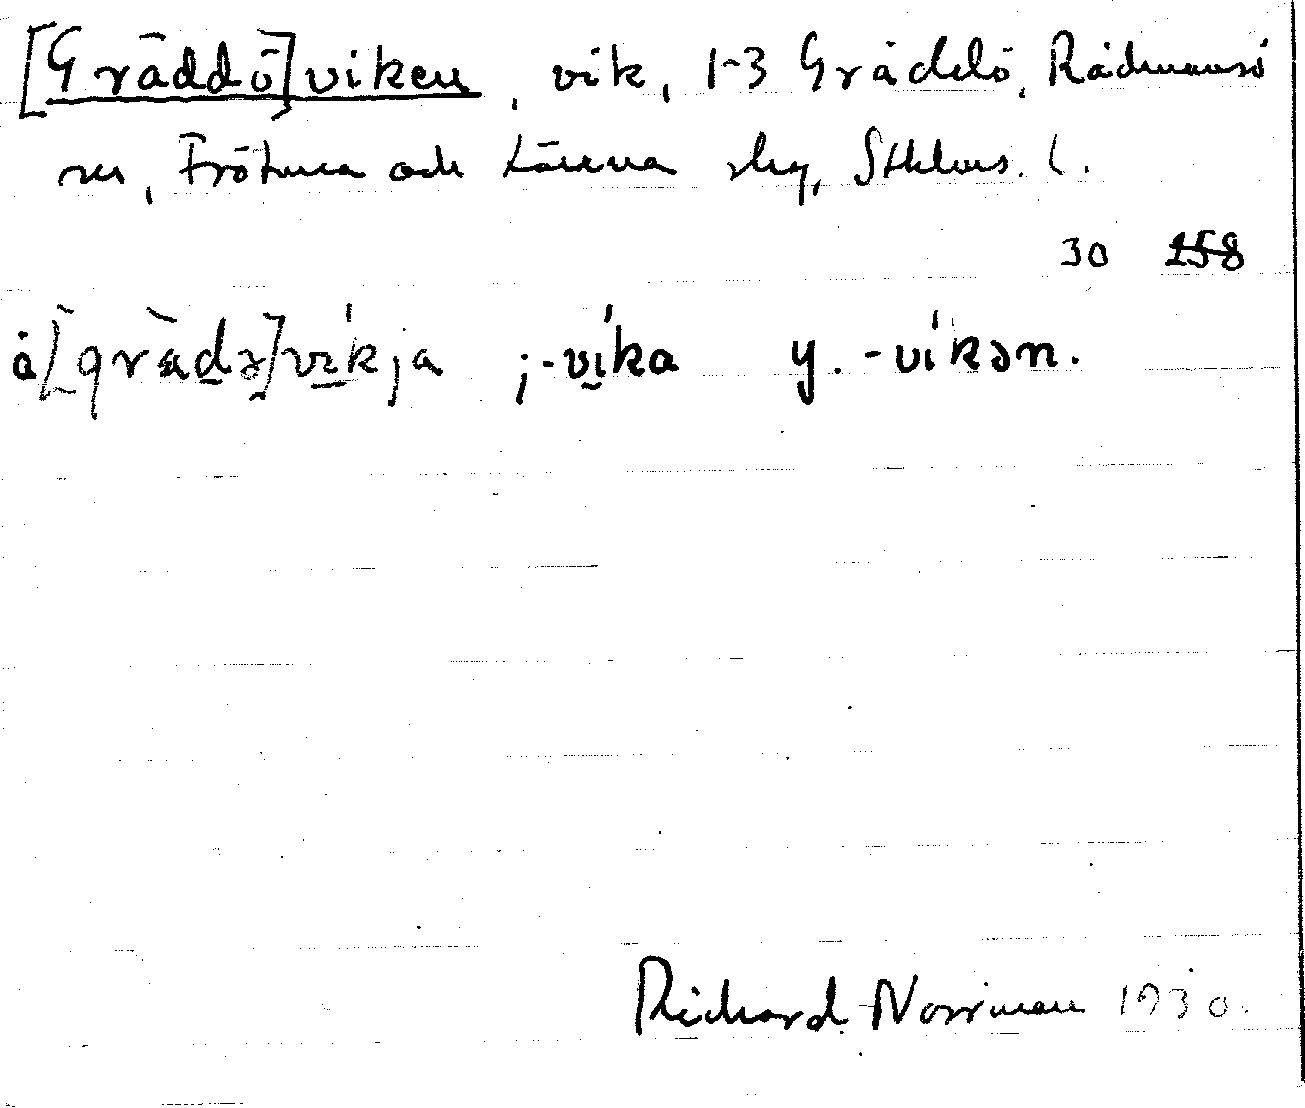 [Gräddö]viken, vik, 1-3 Gräddö, Rådmansö
sn, Frötuna och Länna skg, Sthlms. l.
30 258
å [grädə]vikja ; -vika y. -vikən.
Richard Norrman 1930.